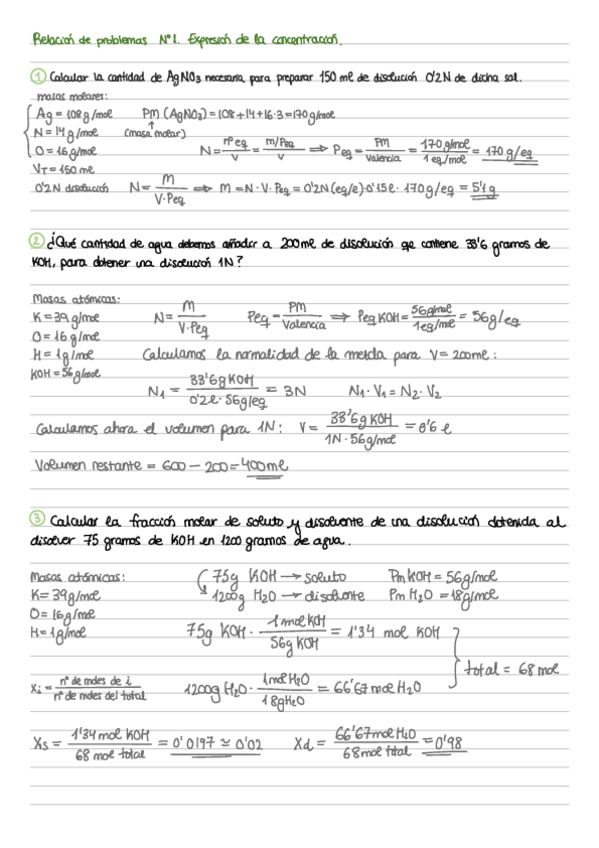 Relación de problemas Nº1. Expresión de la concentración.
① Calcular la cantidad de AgNO₃ necesaria para preparar 150 ml de disolución 0'2N de dicha sal.
masas molares:
Ag = 108 g/mol PM (AgNO₃) = 108 + 14 + 16·3 = 170 g/mol
N = 14 g/mol (masa molar)
O = 16 g/mol N = nº eq / V = m/Peq / V ⟹ Peq = PM / valencia = 170 g/mol / 1 eq/mol = 170 g/eq
V_T = 150 ml
0'2N disolución N = M / V·Peq ⟹ M = N·V·Peq = 0'2N (eq/l)·0'15l · 170 g/eq = 5'1 g
② ¿Qué cantidad de agua debemos añadir a 200 ml de disolución que contiene 33'6 gramos de
KOH, para obtener una disolución 1N?
Masas atómicas:
K = 39 g/mol N = M / V·Peq Peq = PM / Valencia ⟹ Peq KOH = 56 g/mol / 1 eq/mol = 56 g/eq
O = 16 g/mol
H = 1 g/mol Calculamos la normalidad de la mezcla para V = 200 ml:
KOH = 56 g/mol
N₁ = 33'6g KOH / 0'2l · 56g/eq = 3N N₁·V₁ = N₂·V₂
Calculamos ahora el volumen para 1N: V = 33'6g KOH / 1N · 56g/mol = 0'6 l
Volumen restante = 600 - 200 = 400 ml
③ Calcular la fracción molar de soluto y disolvente de una disolución obtenida al
disolver 75 gramos de KOH en 1200 gramos de agua.
Masas atómicas: 75g KOH → soluto Pm KOH = 56 g/mol
K = 39 g/mol 1200g H₂O → disolvente Pm H₂O = 18 g/mol
O = 16 g/mol
H = 1 g/mol 75g KOH · 1 mol KOH / 56g KOH = 1'34 mol KOH
total = 68 mol
Xi = nº de moles de i / nº de moles del total 1200g H₂O · 1 mol H₂O / 18g H₂O = 66'67 mol H₂O
Xs = 1'34 mol KOH / 68 mol total = 0'0197 ≃ 0'02 Xd = 66'67 mol H₂O / 68 mol total = 0'98